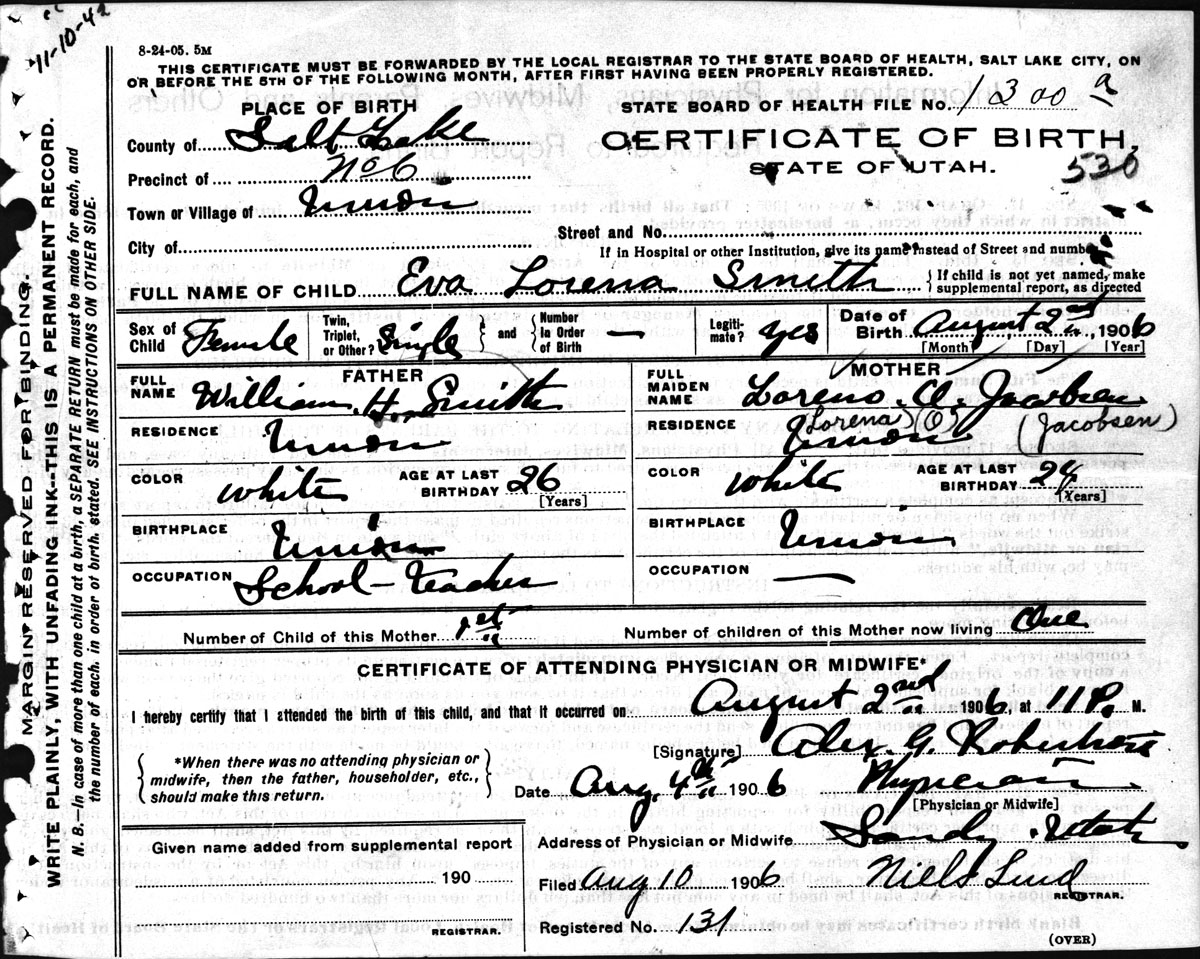 cc
11-10-42
8-24-05. 5M
THIS CERTIFICATE MUST BE FORWARDED BY THE LOCAL REGISTRAR TO THE STATE BOARD OF HEALTH, SALT LAKE CITY, ON
OR BEFORE THE 5TH OF THE FOLLOWING MONTH, AFTER FIRST HAVING BEEN PROPERLY REGISTERED.
PLACE OF BIRTH
STATE BOARD OF HEALTH FILE NO. 1300 a
County of Salt Lake
CERTIFICATE OF BIRTH,
STATE OF UTAH.
530
Precinct of No 6
Town or Village of Union
Street and No.
City of
If in Hospital or other Institution, give its name instead of Street and number.
FULL NAME OF CHILD Eva Lorena Smith
{If child is not yet named, make
supplemental report, as directed
Sex of Child Female
Twin, Triplet, or Other? Single
and
Number in Order of Birth —
Legiti-mate? yes
Date of Birth August 2nd, 1906
[Month] [Day] [Year]
FATHER
FULL NAME William H. Smith
RESIDENCE Union
COLOR white
AGE AT LAST BIRTHDAY 26
[Years]
BIRTHPLACE Union
OCCUPATION School-Teacher
MOTHER
FULL MAIDEN NAME Loreno O. Jacobsen
(Lorena) (O) (Jacobsen)
RESIDENCE Union
COLOR white
AGE AT LAST BIRTHDAY 24
[Years]
BIRTHPLACE Union
OCCUPATION —
Number of Child of this Mother 1st
Number of children of this Mother now living One
CERTIFICATE OF ATTENDING PHYSICIAN OR MIDWIFE*
I hereby certify that I attended the birth of this child, and that it occurred on August 2nd 1906, at 11 P. M.
[Signature] Alex. G. Robertson
{*When there was no attending physician or
midwife, then the father, householder, etc.,
should make this return.}
Date Aug. 4th 1906
Physician
[Physician or Midwife]
Given name added from supplemental report
190
REGISTRAR.
Address of Physician or Midwife Sandy Utah
Filed Aug 10 1906
Niels Lind
REGISTRAR.
Registered No. 131
(OVER)
MARGIN RESERVED FOR BINDING.
WRITE PLAINLY, WITH UNFADING INK--THIS IS A PERMANENT RECORD.
N. B.—In case of more than one child at a birth, a SEPARATE RETURN must be made for each, and
the number of each, in order of birth, stated. SEE INSTRUCTIONS ON OTHER SIDE.